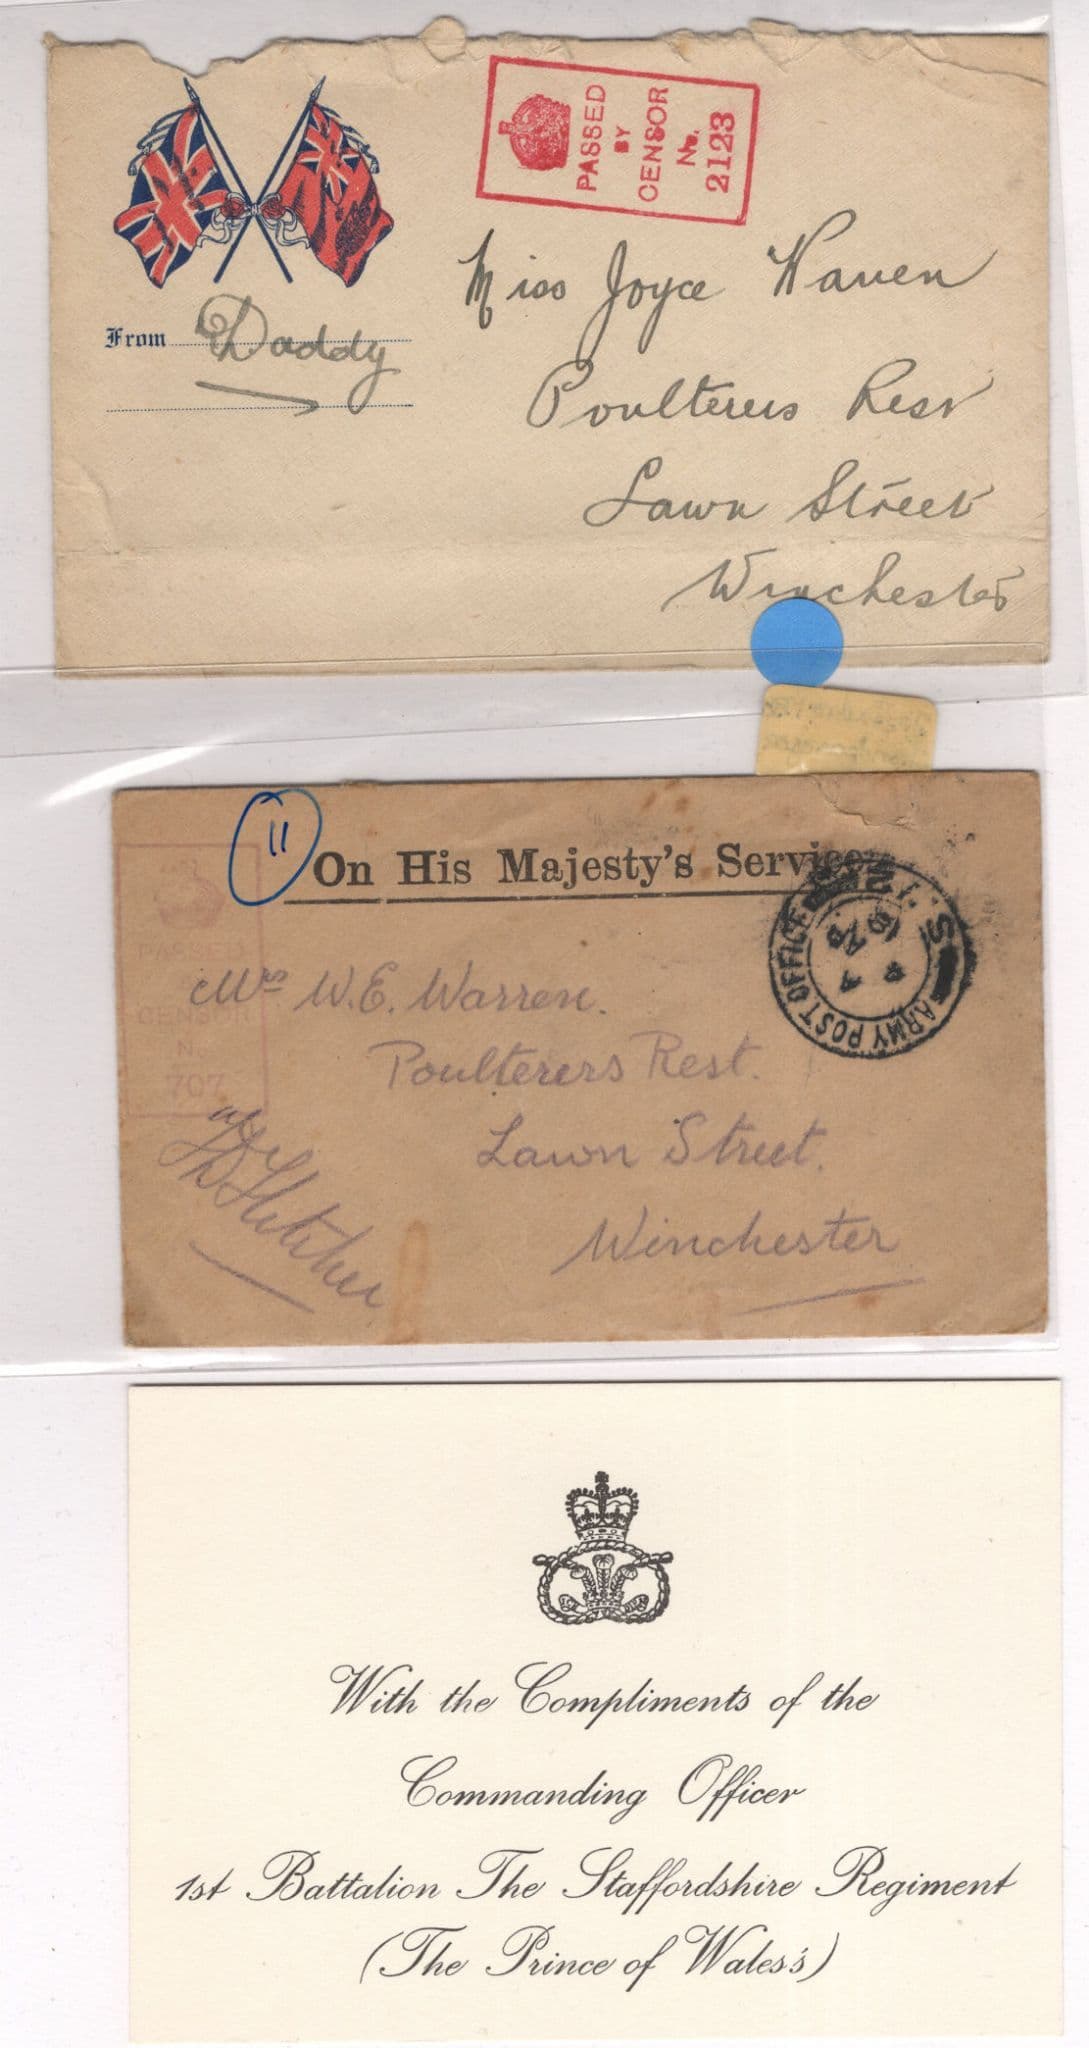 PASSED
BY
CENSOR
No.
2123
Miss Joyce Waren
From Daddy
Poulterers Rest
Lawn Street
Winchester
11
On His Majesty's Service
ARMY POST OFFICE
PASSED
CENSOR
N
707
Mrs W.E. Warren.
Poulterers Rest.
Lawn Street.
Winchester
Fletcher
With the Compliments of the
Commanding Officer
1st Battalion The Staffordshire Regiment
(The Prince of Wales's)